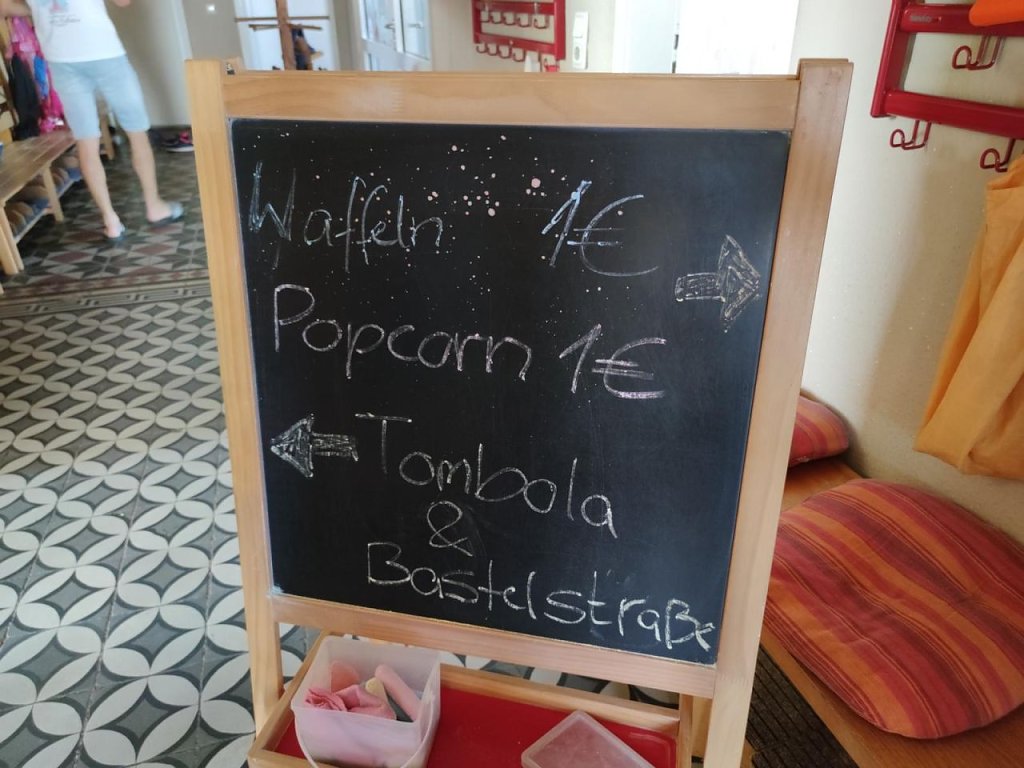 Waffeln 1€
Popcorn 1€
Tombola
&
Bastelstraße